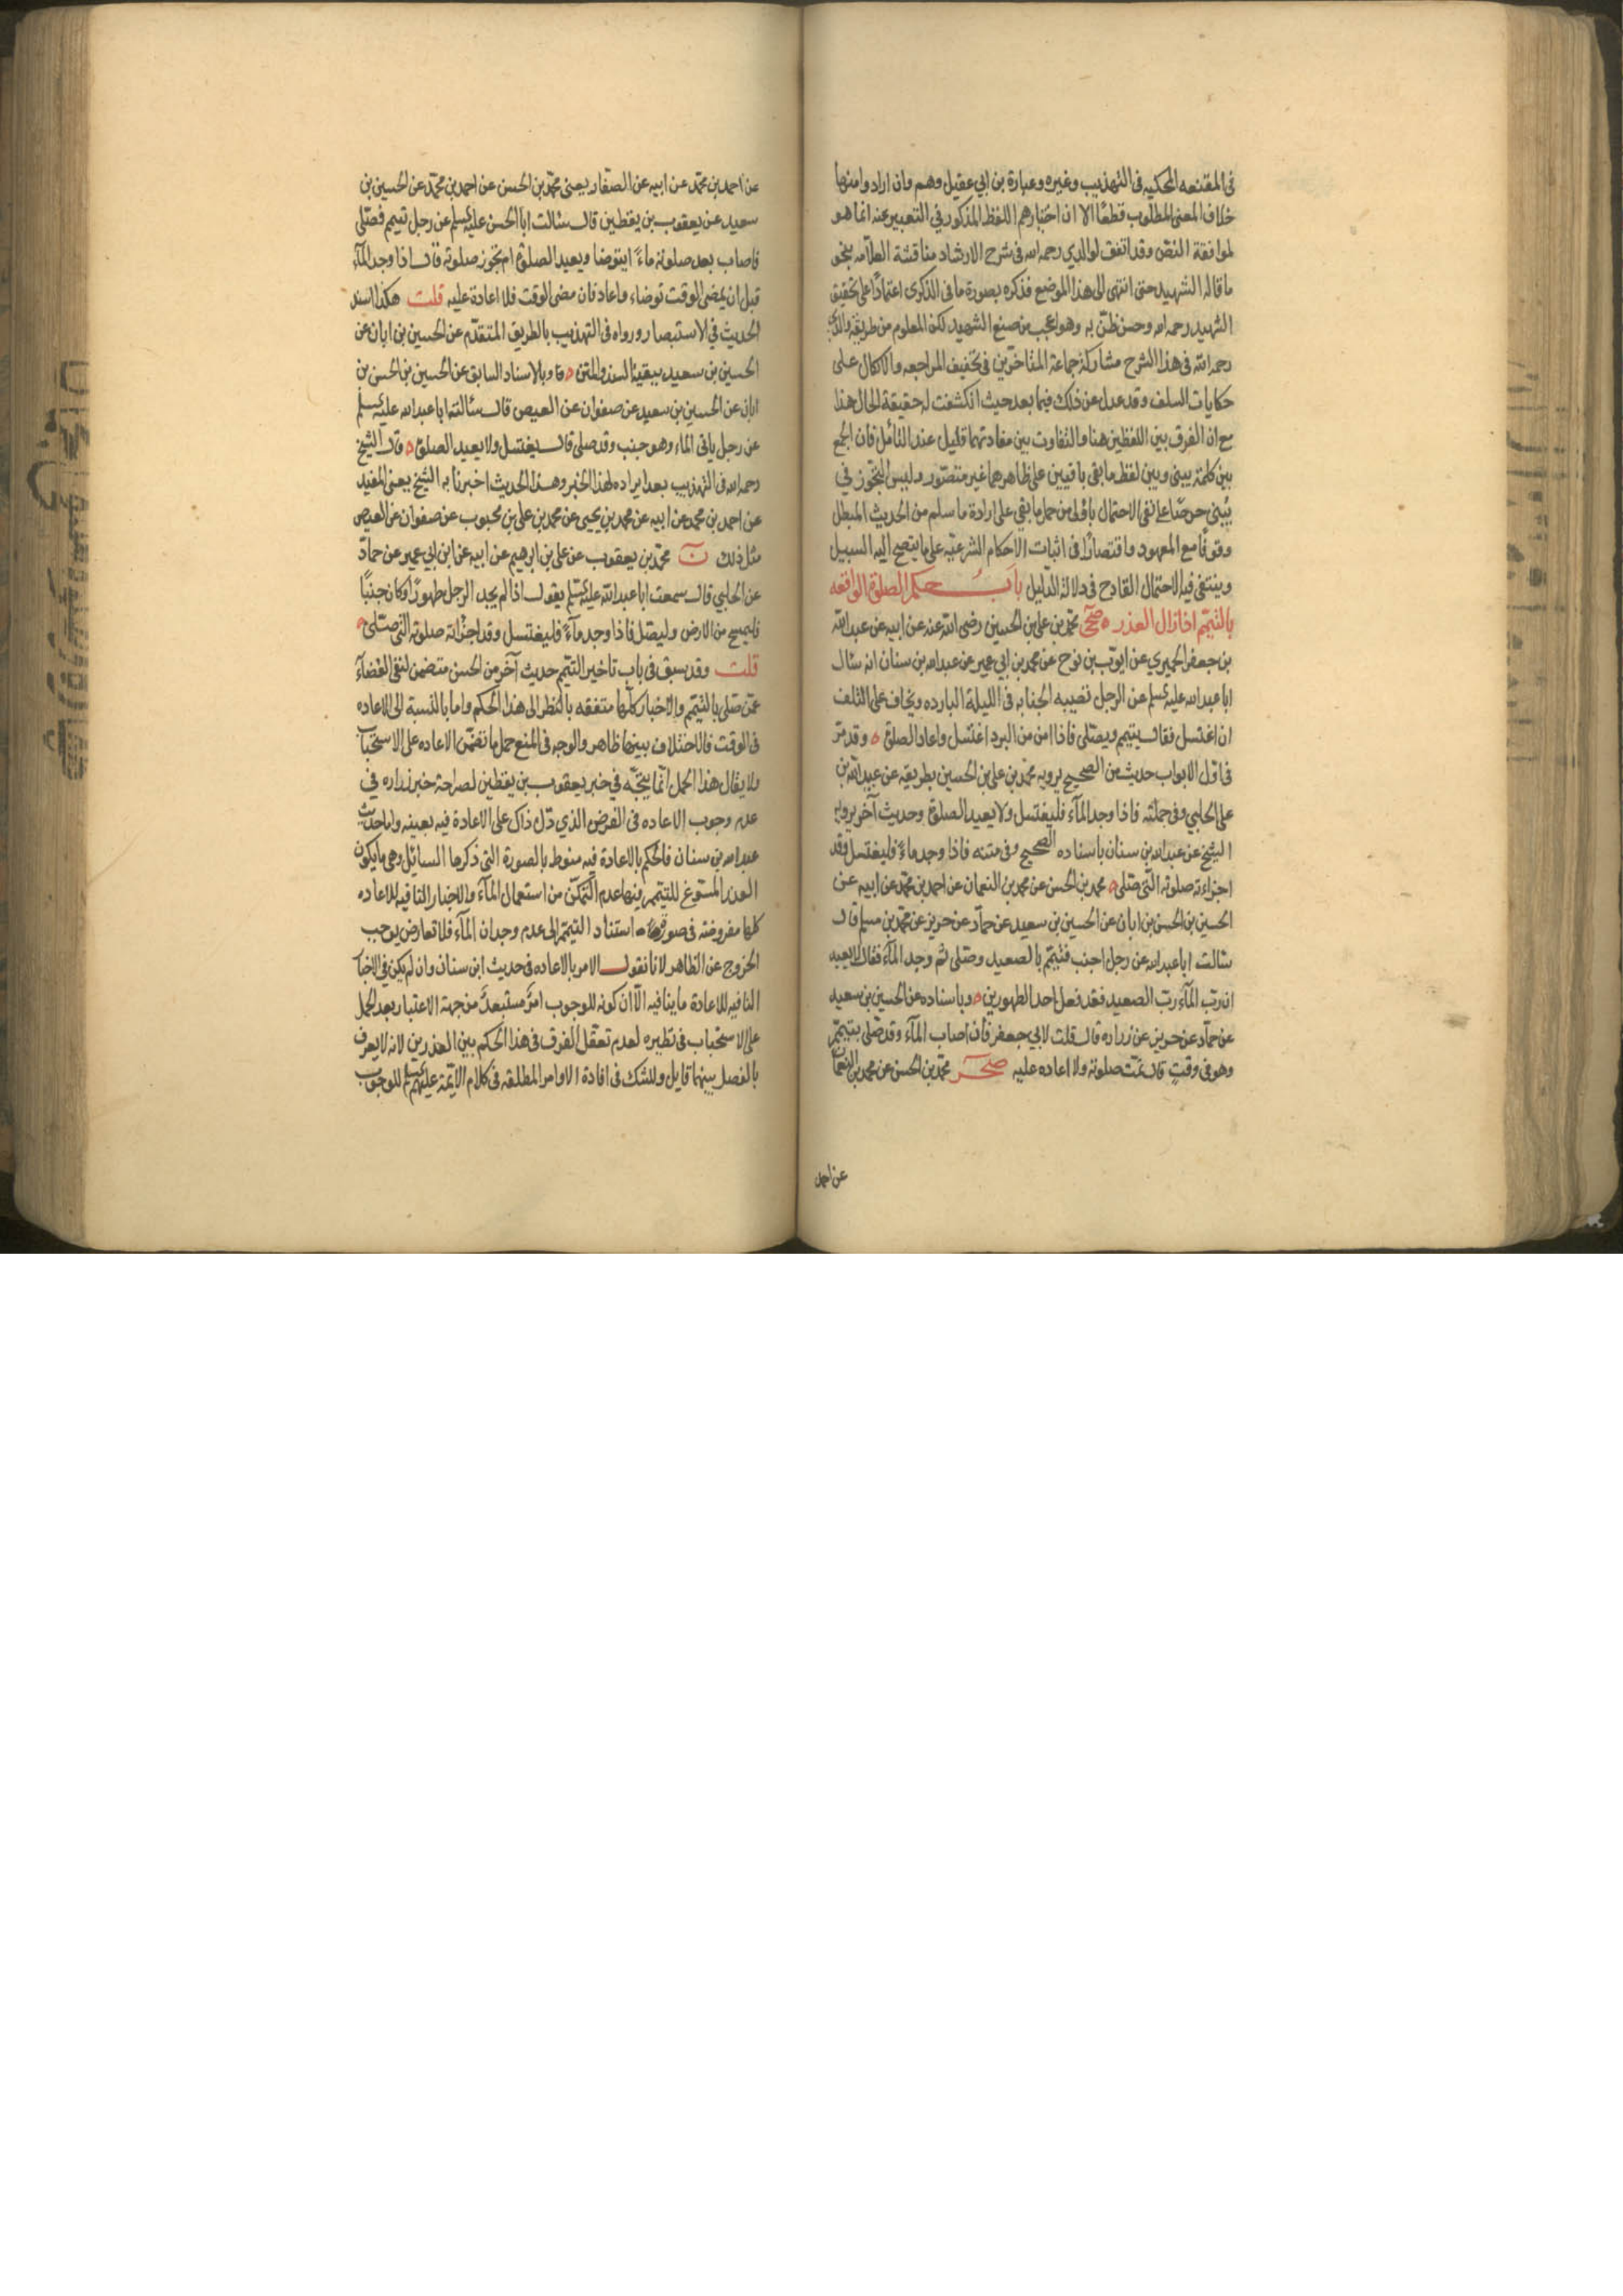 في المقنعه المحكيه في التهذيب وغيره وعبارة بن ابي عقيل وهم وان ارادوا منها
خلاف المعنى المطلوب قطعًا الا ان اختيارهم اللفظ المذكور في التعبير عنه انما هو
لموافقة النص وقد اتفق لوالدي رحمه الله في شرح الارشاد مناقشة العلامه بنحو
ما قاله الشهيد حتى انتهى الى هذا الموضع فذكره بصورة ما في الذكرى اعتمادًا على تحقيق
الشهيد رحمه الله وحسن ظنّ به وهو اعجب من صنع الشهيد لكن المعلوم من طريقة والدي
رحمه الله في هذا الشرح مشاركة جماعة المتاخرين في تخفيف المراجعه والاتكال على
حكايات السلف وقد عدل عن ذلك فيما بعد حيث انكشفت له حقيقة الحال هذا
مع ان الفرق بين اللفظين هنا والتفاوت بين مفادتهما قليل عند التأمل فان الجمع
بين كلمة يبني وبين لفظ ما بقي باقيين على ظاهرهما غير متصور وليس التجوز في
يبني حرصًا على نفي الاحتمال باولى من حمل ما بقي على ارادة ما سلم من الحديث المبطل
وقوفًا مع المعهود واقتصارًا في اثبات الاحكام الشرعيّه على ما يتضح اليه السبيل
وينتفي فيه الاحتمال القادح في دلالة الدليل باب حكم الصلوة الواقعه
بالتيمم اذا زال العذر ه صحي محمد بن علي بن الحسين رضي الله عنه عن ابيه عن عبد الله
بن جعفر الحميري عن ايوب بن نوح عن محمد بن ابي عمير عن عبد الله بن سنان انه سئال
ابا عبد الله عليه السلم عن الرجل تصيبه الجنابه في الليلة البارده ويخاف على التلف
ان اغتسل فقال يتيمم ويصلى فاذا امن من البرد اغتسل واعاد الصلوة ه وقد مرّ
في اول الابواب حديث من الصحيح يرويه محمد بن علي بن الحسين بطريقه عن عبيد الله بن
علي الحلبي وفي جملته فاذا وجد المآء فليغتسل ولا يعيد الصلوة وحديث آخر يرويه
الشيخ عن عبد الله بن سنان باسناده الصحيح وفي متنه فاذا وجد ماءً فليغتسل وقد
اجزاته صلوته التي صلى ه محمد بن الحسن عن محمد بن النعمان عن احمد بن محمد عن ابيه عن
الحسين بن الحسن بن ابان عن الحسين بن سعيد عن حمآد عن حريز عن محمد بن مسلم قال
سئالت ابا عبد الله عن رجل اجنب فتيمم بالصعيد وصلى ثم وجد المآء فقال لا يعيد
ان رب المآء رب الصعيد فقد فعل احد الطهورين ه وباسناده عن الحسين بن سعيد
عن حمآد عن حريز عن زراده قال قلت لابي جعفر فان اصاب المآء وقد صلى بتيمم
وهو في وقتٍ قال تمت صلوته ولا اعاده عليه صحر محمد بن الحسن عن محمد بن النعمان
عن احمد
عن احمد بن محمد عن ابيه عن الصفار يعني محمد بن الحسن عن احمد بن محمد عن الحسين بن
سعيد عن يعقوب بن يقطين قال سئالت ابا الحسن عليه السلم عن رجل تيمم فصلى
فاصاب بعد صلوته ماءً ايتوضا ويعيد الصلوة ام تجوز صلوته قال اذا وجد المآء
قبل ان يمضي الوقت توضاء واعاد فان مضى الوقت فلا اعادة عليه قلت هكذا اسند
الحديث في الاستبصار ورواه في التهذيب بالطريق المتقدم عن الحسين بن ابان عن
الحسين بن سعيد ببقية السند والمتن ه وبالاسناد السابق عن الحسين بن الحسن بن
ابان عن الحسين بن سعيد عن صفوان عن العيص قال سئالت ابا عبد الله عليه السلم
عن رجل ياتي الماء وهو جنب وقد صلى قال يغتسل ولا يعيد الصلوة ه قال الشيخ
رحمه الله في التهذيب بعد ايراده لهذا الخبر وهذا الحديث اخبرنا به الشيخ يعني المفيد
عن احمد بن محمد عن ابيه عن محمد بن يحيى عن محمد بن علي بن محبوب عن صفوان عن العيص
مثل ذلك ن محمد بن يعقوب عن علي بن ابرهيم عن ابيه عن ابن ابي عمير عن حمآد
عن الحلبي قال سمعت ابا عبد الله عليه السلم يقول اذا لم يجد الرجل طهورًا وكان جنبًا
فليمسح من الارض وليصل فاذا وجد مآءً فليغتسل وقد اجزأته صلوته التي صلى ه
قلت وقد سبق في باب تاخير التيمم حديث آخر من الحسن متضمن لنفي القضآء
عمن صلى بالتيمم والاخبار كلها متفقه بالنظر الى هذا الحكم واما بالنسبة الى الاعاده
في الوقت فالاختلاف بينها ظاهر والوجه في المنع حمل ما تضمن الاعاده على الاستحباب
ولا يقال هذا الحمل انما يتجه في خبر يعقوب بن يقطين لصراحة خبر زراره في
عدم وجوب الاعاده في الفرض الذي دل ذاك على الاعادة فيه بعينه واما حديث
عبد الله بن سنان فالحكم بالاعادة فيه منوط بالصورة التي ذكرها السائل وهي ما يكون
العذر المسوغ للتيمم فيها عدم التمكن من استعمال المآء والاخبار النافيه للاعاده
كلها مفروضة في صورة استناد التيمم الى عدم وجدان المآء فلا تعارض يوجب
الخروج عن الظاهر لانا نقول الامر بالاعاده في حديث ابن سنان وان لم يكن في الاخبار
النافيه للاعادة ما ينافيه الا ان كونه للوجوب امرٌ مستبعدٌ من جهة الاعتبار بعد الحمل
على الاستحباب في نظيره لعدم تعقل الفرق في هذا الحكم بين العذرين لانه لا يعرف
بالفصل بينهما قايل وللشك في افادة الاوامر المطلقه في كلام الائمة عليهم السلم للوجوب